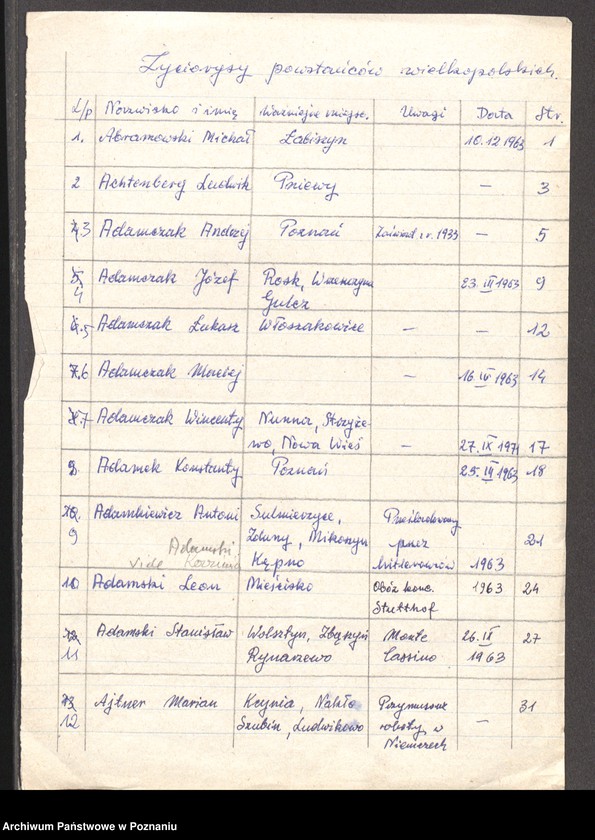 Życiorysy powstańców wielkopolskich.
L/p Nazwisko i imię Ważniejsze miejsc. Uwagi Data Str.
1. Abramowski Michał Łabiszyn 10.12.1963 1
2 Achtenberg Ludwik Pniewy — 3
3 Adamczak Andrzej Poznań 1933 — 5
4 Adamczak Józef Rosk, Wrzeszczyna 23.III 1963 9
Gulcz
5 Adamczak Łukasz Włoszakowice — — 12
6 Adamczak Maciej — 16.IV 1963 14
7 Adamczak Wincenty Nunna, Strzyże-
wo, Nowa Wieś — 27.IX 1971 17
8. Adamek Konstanty Poznań 25.III 1963 18
9 Adamkiewicz Antoni Sulmierzyce, Prześladowany
Zduny, Mikorzyn przez 21
Kępno hitlerowców 1963
Adamski
vide
10 Adamski Leon Mieścisko Obóz konc. 1963 24
Stutthof
11 Adamski Stanisław Wolsztyn, Zbąszyń Monte 26.II 27
Rynarzewo Cassino 1963
12 Ajtner Marian Kcynia, Nakło Przymusowe 31
Szubin, Ludwikowo roboty w —
Niemczech
Archiwum Państwowe w Poznaniu